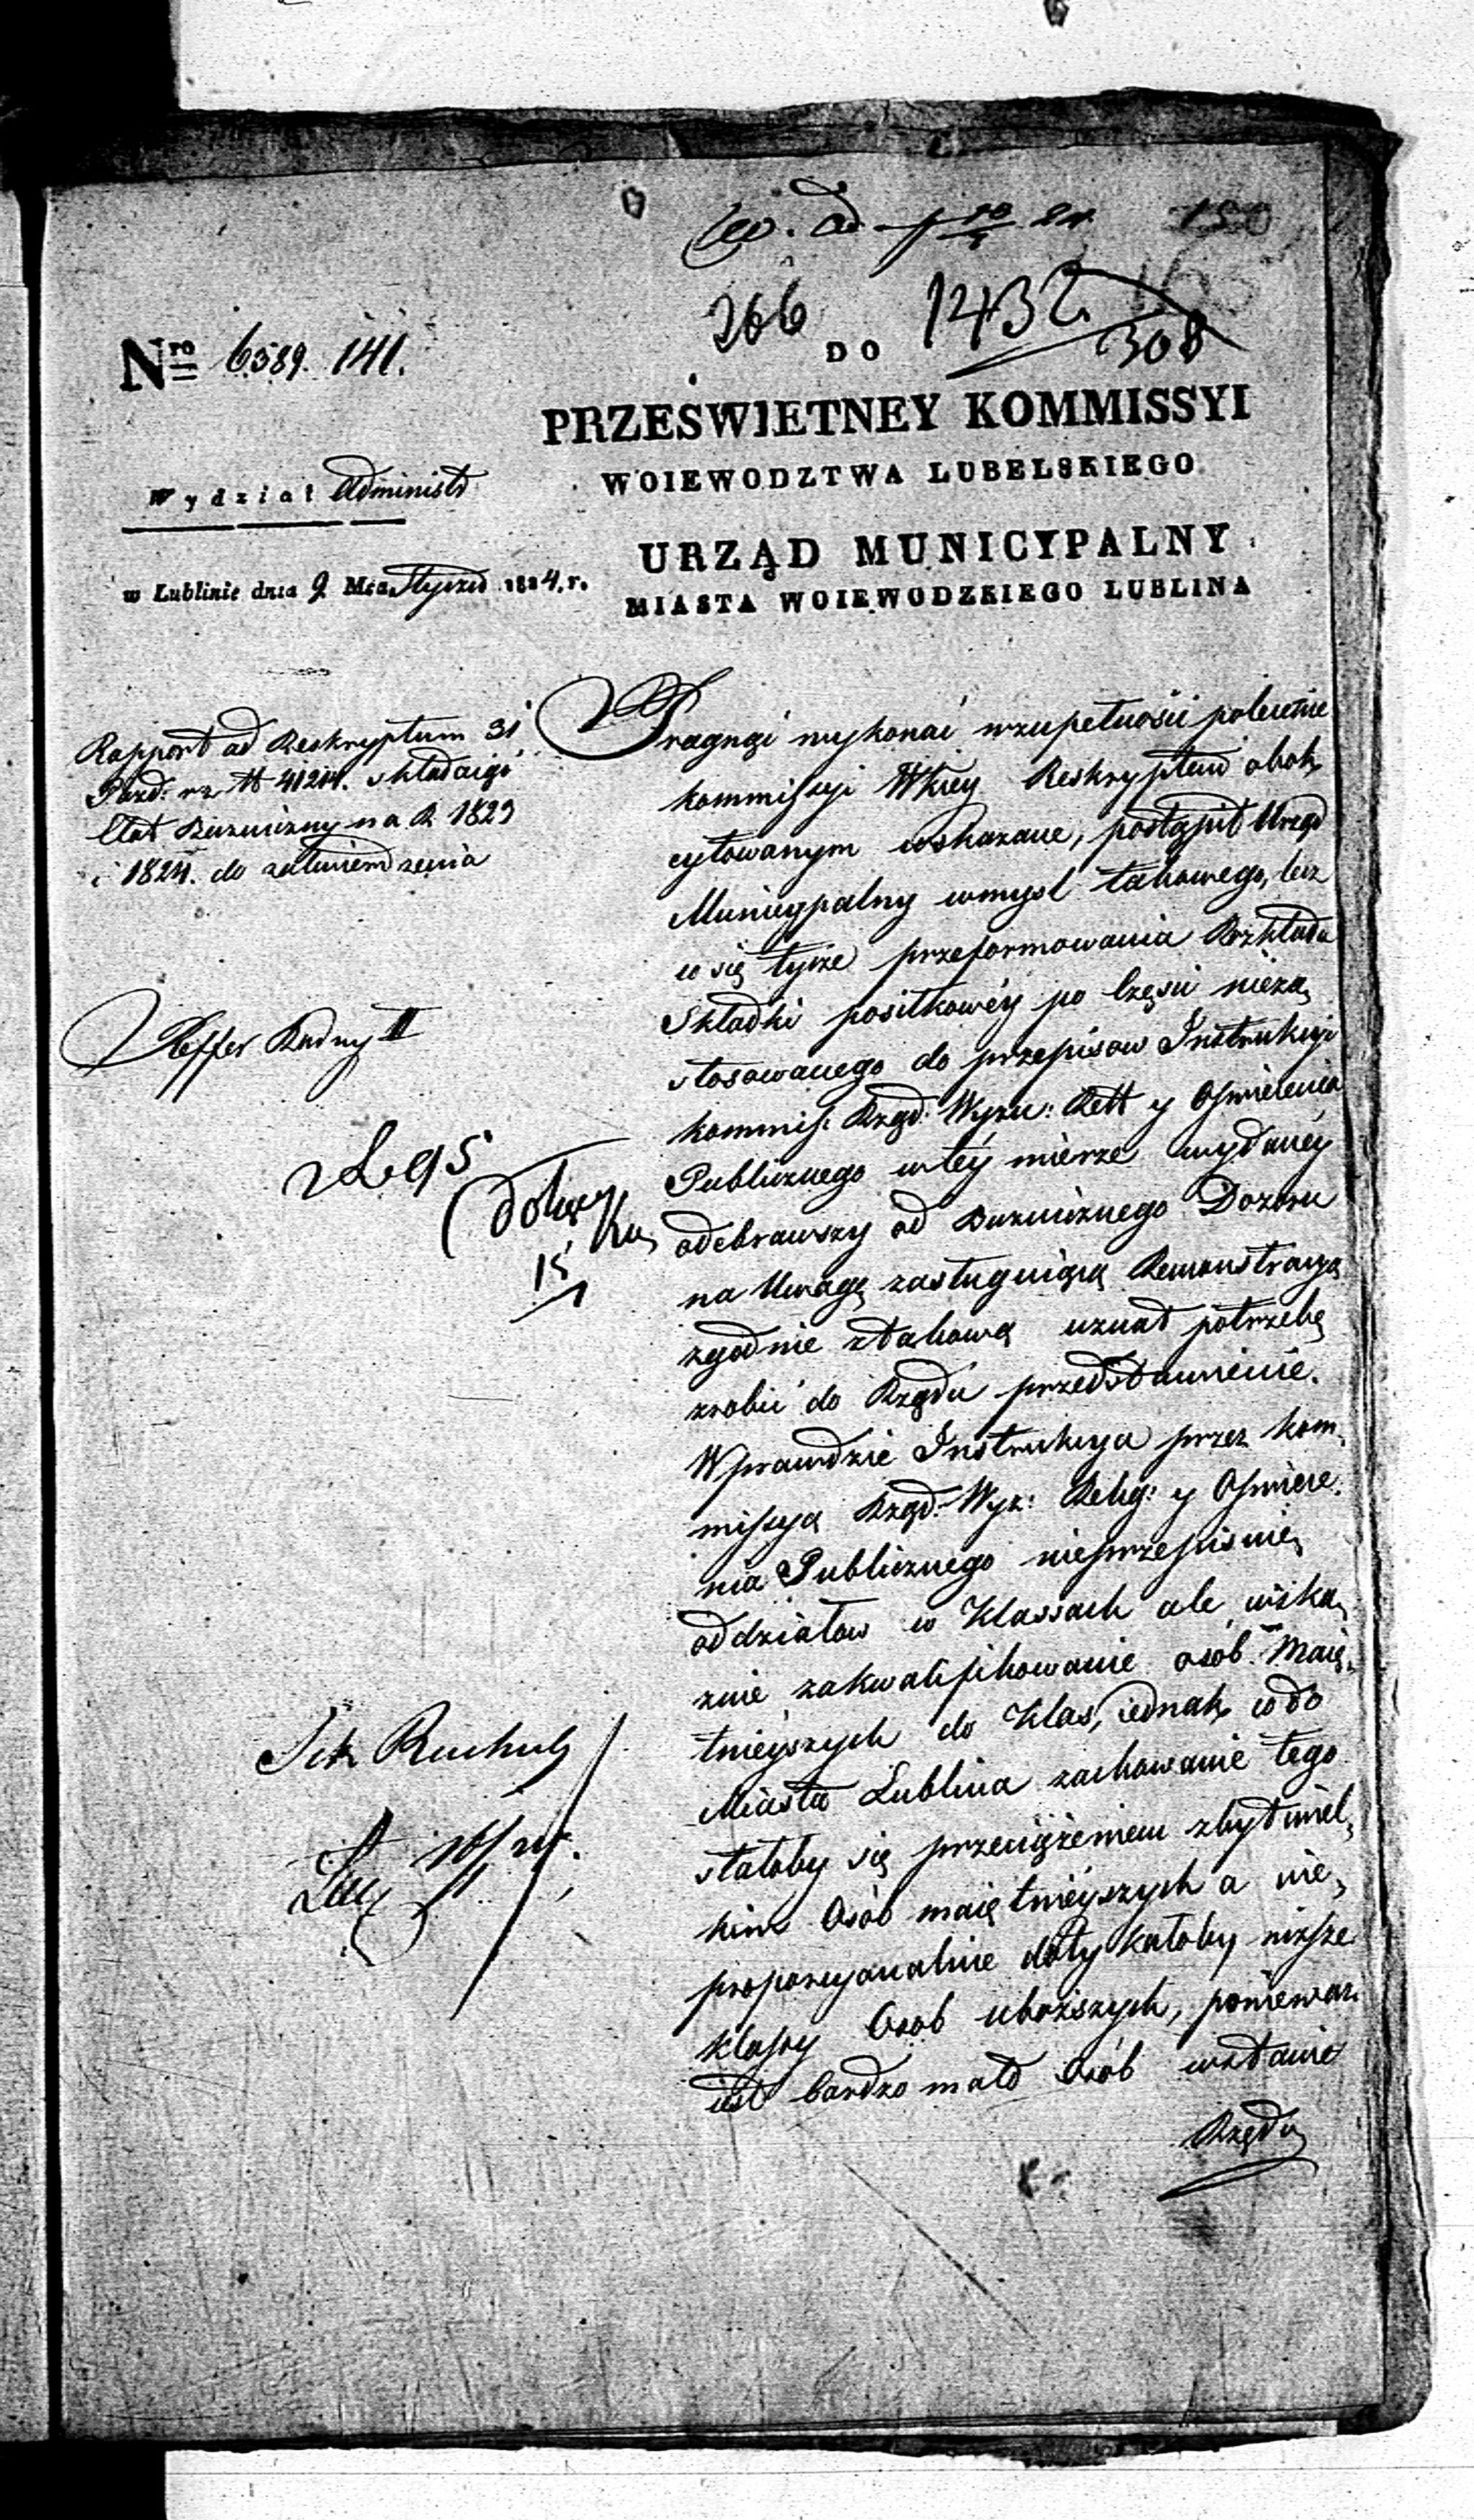 150
266 1432
308
Nro 6589. 141.
DO
PRZESWIETNEY KOMMISSYI
WOIEWODZTWA LUBELSKIEGO
Wydział Administ
URZĄD MUNICYPALNY
MIASTA WOIEWODZKIEGO LUBLINA
w Lublinie dnia 9 Mca Stycznia 1824. r.
Rapport ad Reskryptum 31
Pazd: rz N 41214. składaiąc
Etat Buzniczny na R 1823
i 1824. do zatwierdzenia
Reffer Radny II
15
1
Pragnąć wykonać wzupełności polecenie
kommissyi Wkiey Reskryptem obok
cytowanym wskazane, postąpił Urząd
Municypalny wmysl takowego, lecz
co się tycze przeformowania Rozkładu
Składki posiłkowéy po części nieza„
stosowanego do przepisow Instrukcyi
kommis: Rząd: Wyzn: Rell y Oświecenia
Publicznego wtéy mierze wydanéy
odebrawszy od Buznicznego Dozoru
na Uwagę zasługuiącą Remonstracyą
zgodnie ztakową uznał potrzebę
zrobić do Rządu przedstawienie.
Wprawdzie Instrukcya przez Kom„
missyą Rząd: Wyz: Relig: y Oswiece„
nia Publicznego nieprzepisuie„
oddziałow w Klassach ale wska„
zuie zakwalifikowanie osób Maię„
tnieyszych do Klas, iednak co do
Miasta Lublina zachowanie tego
stałoby się przeciążeniem zbyt wiel„
kim Osób maiętnieyszych a nie„
proporcyonalnie dotykałoby niższe
klassy Osob uboższych, ponieważ
iest bardzo mało Osób wstanie
Rzędu